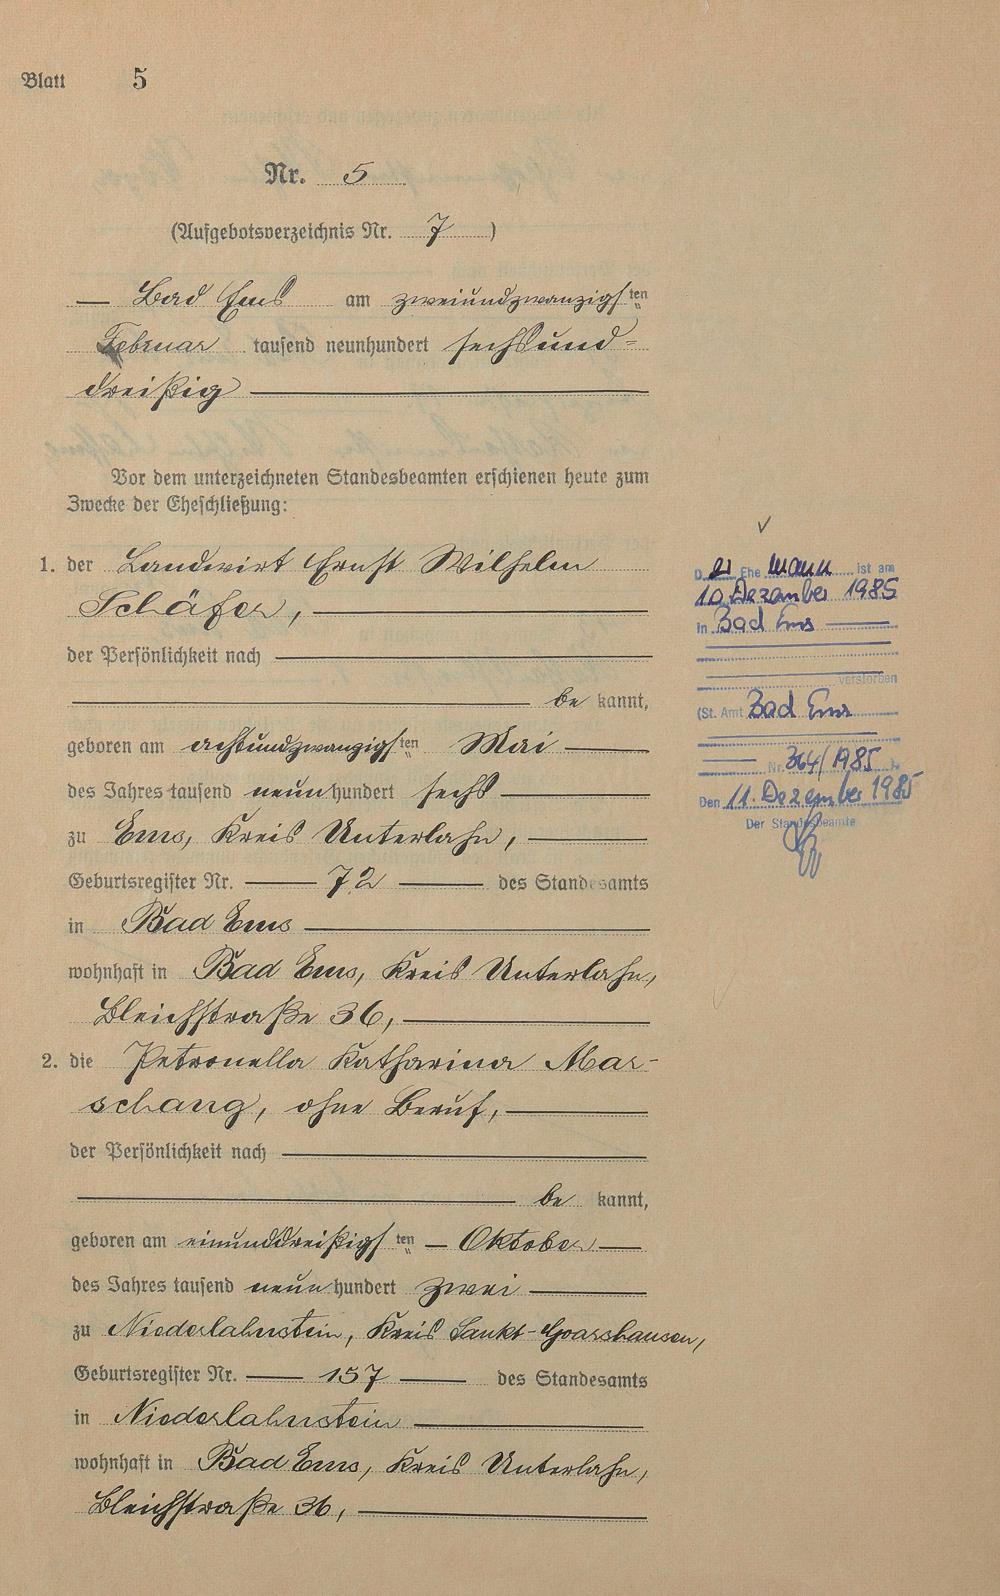 Blatt 5
Nr. 5
(Aufgebotsverzeichnis Nr. 7)
Bad Ems am zweiundzwanzigsten
Februar tausend neunhundert sechsund-
dreißig
Vor dem unterzeichneten Standesbeamten erschienen heute zum
Zwecke der Eheschließung:
1. der Landwirt Ernst Wilhelm
Schäfer,
der Persönlichkeit nach
bekannt,
geboren am achtundzwanzigsten Mai
des Jahres tausend neunhundert sechs
zu Ems, Kreis Unterlahn,
Geburtsregister Nr. 72 des Standesamts
in Bad Ems
wohnhaft in Bad Ems, Kreis Unterlahn,
Bleichstraße 36,
2. die Petronella Katharina Mar-
schang, ohne Beruf,
der Persönlichkeit nach
bekannt,
geboren am einunddreißigsten Oktober
des Jahres tausend neunhundert zwei
zu Niederlahnstein, Kreis Sankt-Goarshausen,
Geburtsregister Nr. 157 des Standesamts
in Niederlahnstein
wohnhaft in Bad Ems, Kreis Unterlahn,
Bleichstraße 36,
Der Ehemann ist am
10. Dezember 1985
in Bad Ems
verstorben
(St. Amt Bad Ems
Nr. 364/1985)
Den 11. Dezember 1985
Der Standesbeamte